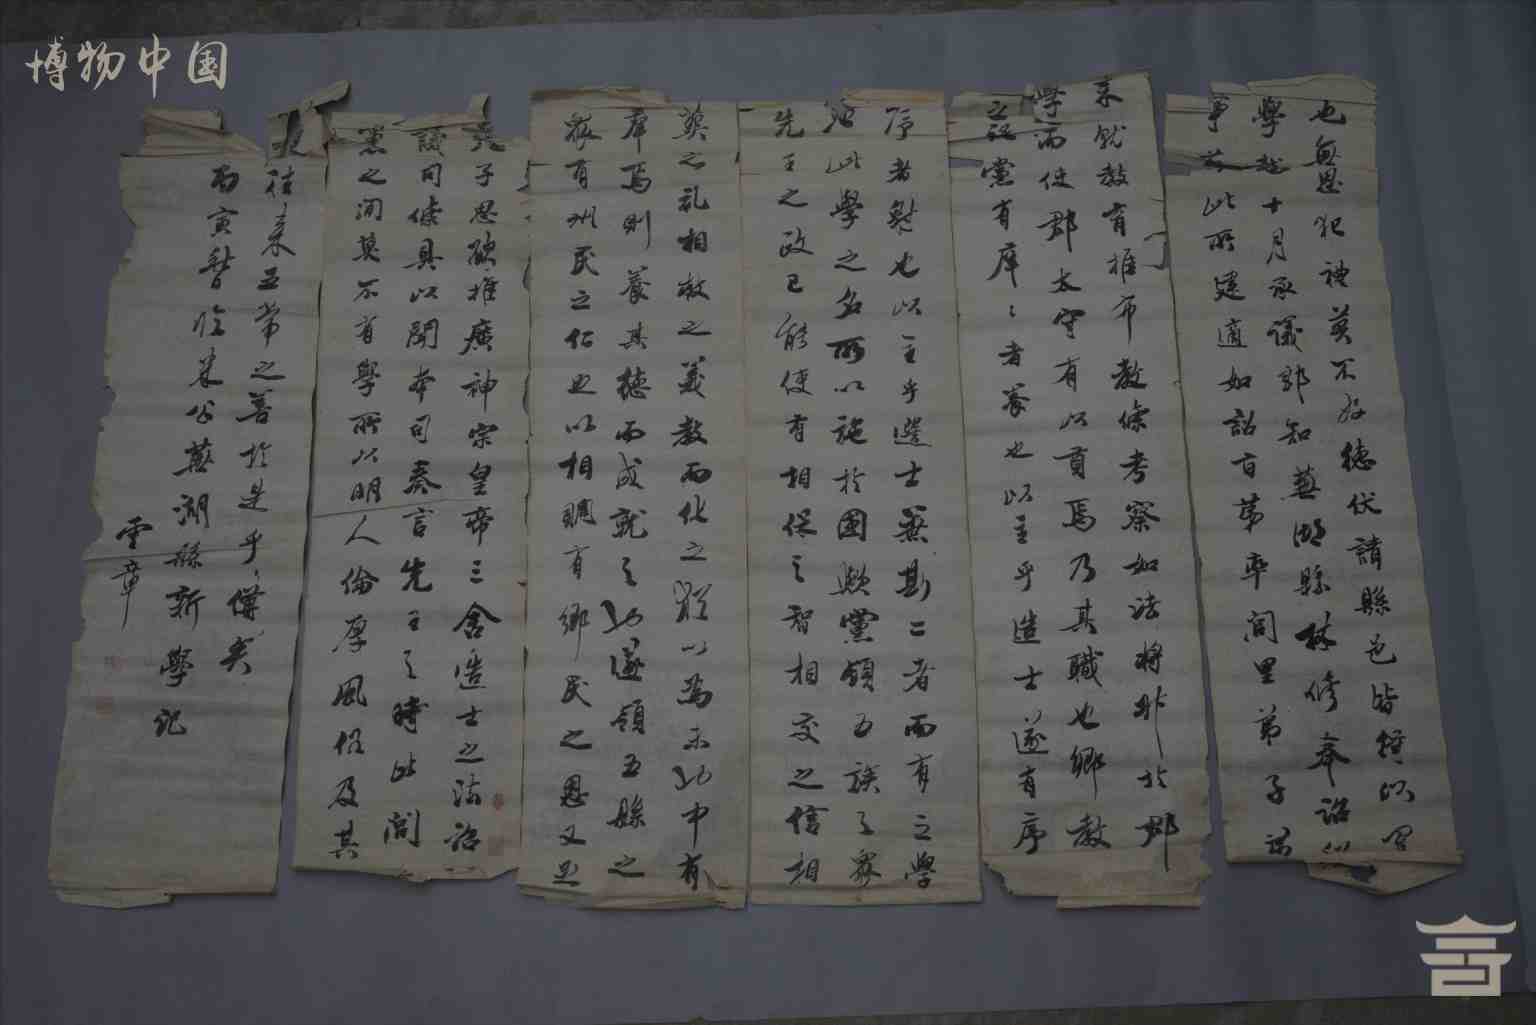 博物中国
也無思犯禮莫不好德伏請縣邑皆得以置
學越十月承議郎知蕪湖縣林修奉詔
事於此所建適如詔旨第率閭里弟子
來就教育推布教條考察如法將升於郡
學而使郡太守有以貢焉乃其職也鄉教
之記黨有庠〻者養也以主乎造士遂有序
序者射也以主乎選士無斯二者而有之學
此學之名所以施於國歟黨領五族之眾
先王之政已能使有相保之智相交之信相
葬之礼相救之義教而化之殆以為未也中有
庠焉則養其德而成就之也遂領五縣之
眾有州民之仁也以相賙有鄉民之恩又且
夫子思欲推廣神宗皇帝三舍造士之法詔
議司條具以聞本司奏言先王之時比閭
黨之間莫不有學所以明人倫厚風俗及其
往來五常之善於是乎備矣
丙寅春臨米公蕪湖縣新學記
雲章